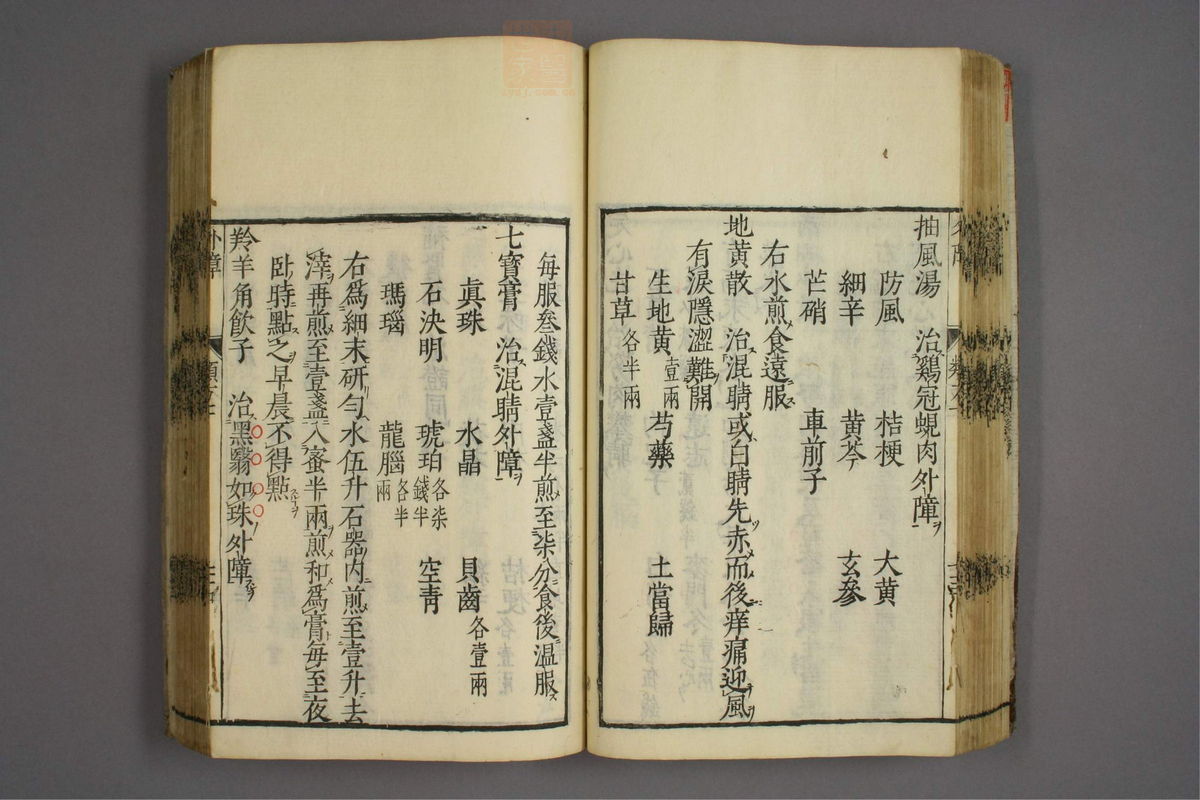 抽風湯 治鷄冠蜆肉外障
防風 桔梗 大黄
細辛 黄芩 玄參
芒硝 車前子
右水煎食遠服
地黄散 治混睛或白睛先赤而後痒痛迎風
有淚隱澀難開
生地黄壹兩 芍藥 土當歸
甘草各半兩
每服叁錢水壹盞半煎至柒分食後温服
七寶膏 治混睛外障
眞珠 水晶 貝齒各壹兩
石決明 琥珀各柒錢半 空靑
瑪瑙 龍腦各半兩
右爲細末研勻水伍升石器内煎至壹升去
滓再煎至壹盞入蜜半兩煎和爲膏每至夜
卧時點之早晨不得點
羚羊角飲子 治黑翳如珠外障
外障